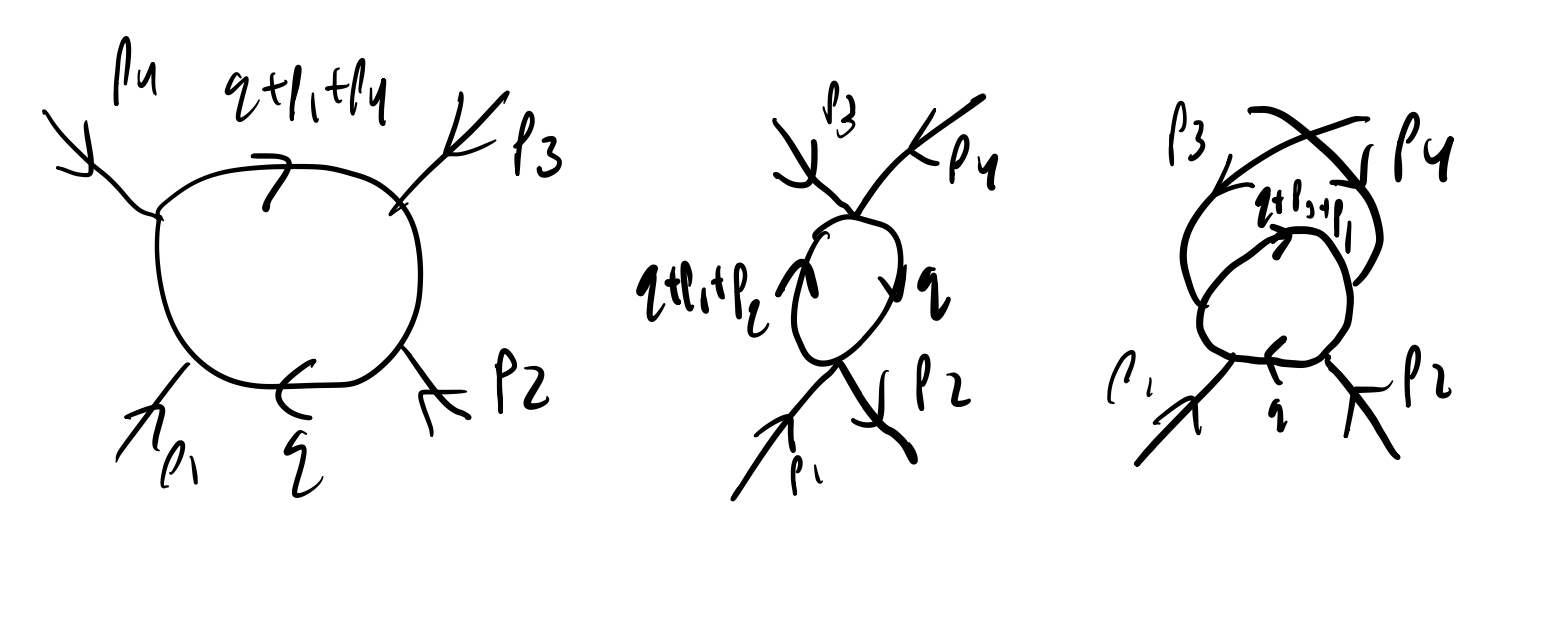 p4
q+p1+p4
p3
p1
q
p2
p3
p4
q+p1+p2
q
p1
p2
p3
p4
q+p3+p1
p1
q
p2